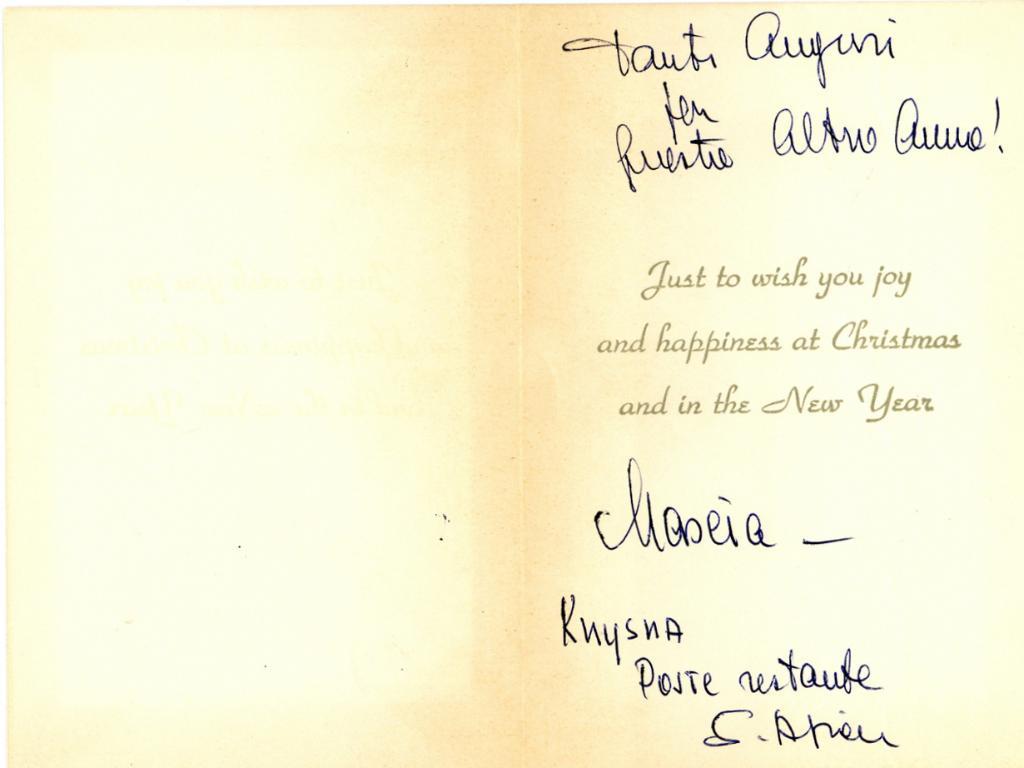 Tanti Auguri
per
Questo Altro Anno!
Just to wish you joy
and happiness at Christmas
and in the New Year
Mascia —
Knysna
Poste restante
S. Africa